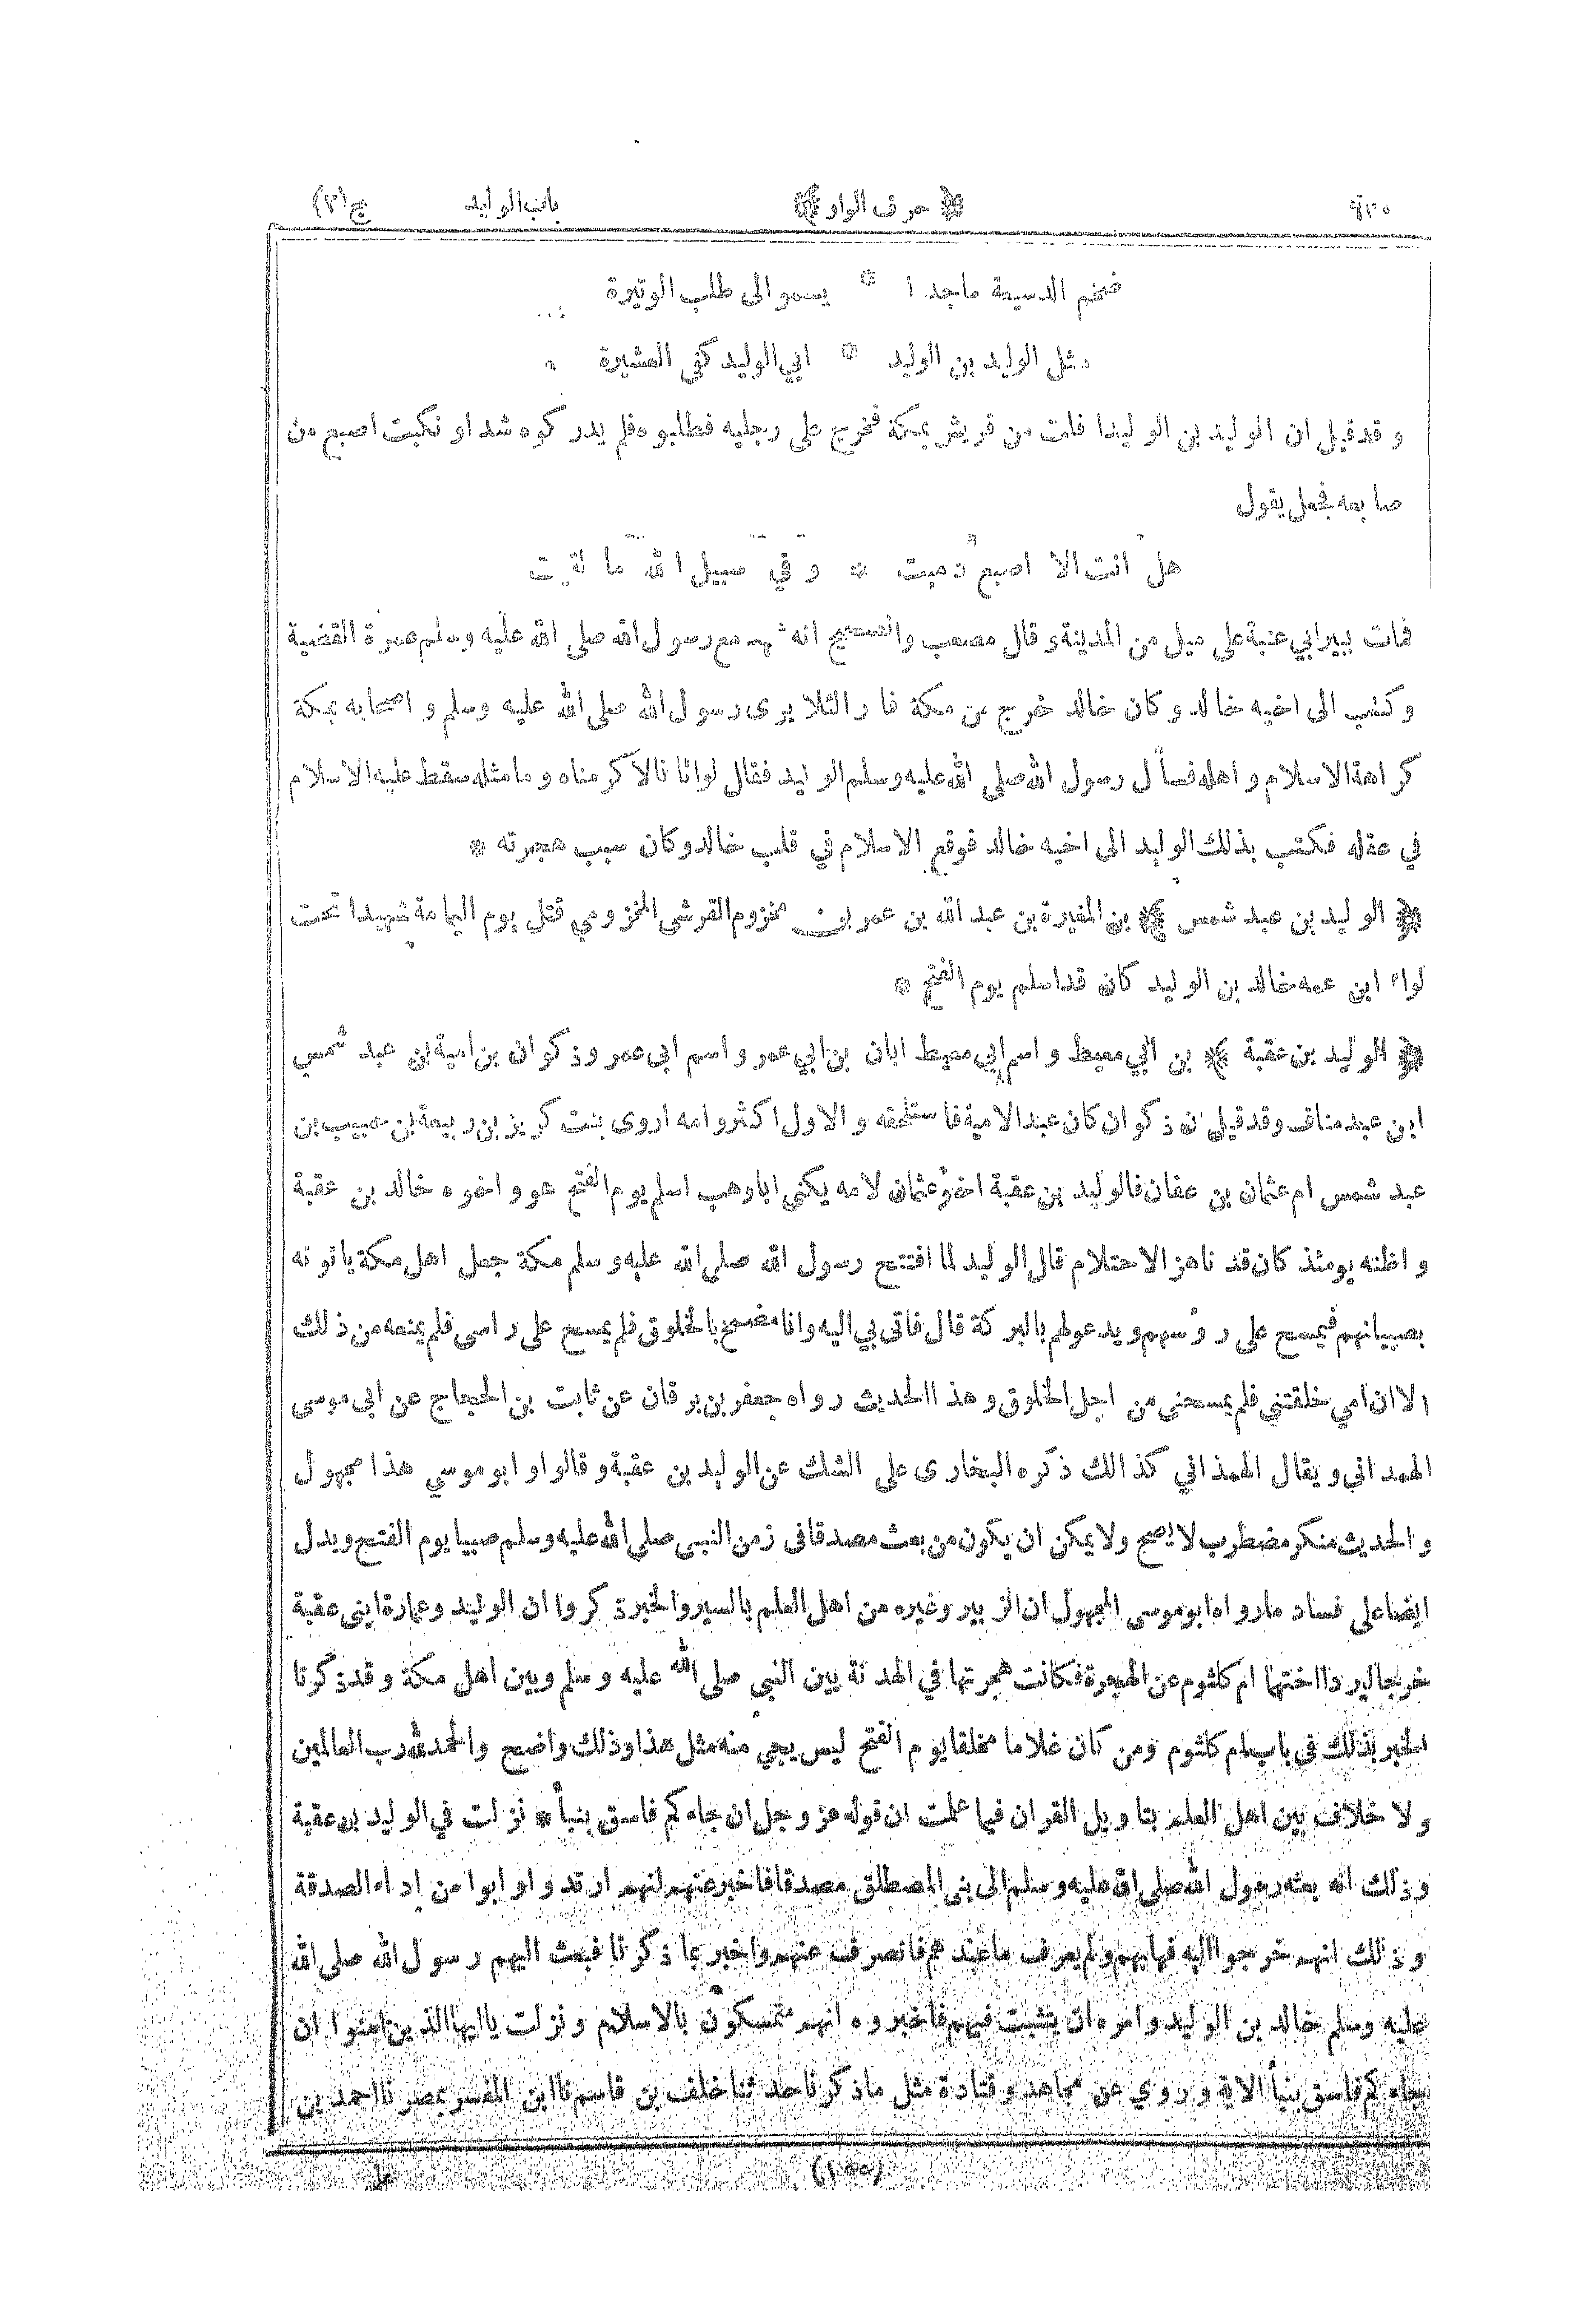 ٦٢٠ ﴿ حرف الواو ﴾ باب الوليد ج (٢)
ضخم الدسيعة ماجدا * يسمو الى طلب الوتيرة
مثل الوليد بن الوليد * ابي الوليد كفى العشيرة
و قد قيل ان الوليد بن الوليد افلت من قريش بمكة فخرج على رجليه فطلبوه فلم يدركوه شدا و نكبت اصبع من
صابعه فجعل يقول
هل انت الا اصبع دميت * و في سبيل الله ما لقيت
فمات ببير ابي عنبة على ميل من المدينة و قال مصعب والصحيح انه شهد مع رسول الله صلى الله عليه و سلم عمرة القضية
و كتب الى اخيه خالد و كان خالد خرج من مكة فارا لئلا يرى رسول الله صلى الله عليه وسلم و اصحابه بمكة
كراهة الاسلام و اهله فسأل رسول الله صلى الله عليه و سلم الوليد فقال لو اتانا لاكرمناه و ما مثله سقط عليه الاسلام
في عقله فكتب بذلك الوليد الى اخيه خالد فوقع الاسلام في قلب خالد و كان سبب هجرته *
﴿ الوليد بن عبد شمس ﴾ بن المغيرة بن عبد الله بن عمر بن مخزوم القرشى المخزومي قتل يوم اليمامة شهيدا تحت
لواء ابن عمه خالد بن الوليد كان قد اسلم يوم الفتح *
﴿ الوليد بن عقبة ﴾ بن ابي معيط و اسم ابي معيط ابان بن ابي عمر و اسم ابى عمر و ذكوان بن امية بن عبد شمس
ابن عبد مناف و قد قيل ان ذكوان كان عبدا لامية فاستلحقه و الاول اكثر و امه اروى بنت كريز بن ربيعة بن حبيب بن
عبد شمس ام عثمان بن عفان فالوليد بن عقبة اخو عثمان لامه يكنى ابا وهب اسلم يوم الفتح هو و اخوه خالد بن عقبة
و اظنه يومئذ كان قد ناهز الاحتلام قال الوليد لما افتتح رسول الله صلى الله عليه و سلم مكة جعل اهل مكة ياتونه
بصبيانهم فيمسح على رؤسهم و يدعو لهم بالبركة قال فاتى بي اليه و انا مضمخ بالخلوق فلم يمسح على راسى فلم يمنعه من ذلك
الا ان امي خلقتني فلم يمسحنى من اجل الخلوق و هذا الحديث رواه جعفر بن برقان عن ثابت بن الحجاج عن ابى موسى
الهمداني و يقال الهمذاني كذالك ذكره البخارى على الشك عن الوليد بن عقبة و قالوا و ابو موسي هذا مجهول
و الحديث منكر مضطرب لا يصح و لا يمكن ان يكون من بعث مصدقا فى زمن النبى صلى الله عليه وسلم صبيا يوم الفتح و يدل
ايضا على فساد ما رواه ابو موسى المجهول ان الزبير و غيره من اهل العلم بالسير والخبر ذكروا ان الوليد و عمارة ابنى عقبة
خرجا ليردا اختهما ام كلثوم عن الهجرة فكانت هجرتها في الهدنة بين النبي صلى الله عليه و سلم و بين اهل مكة و قد ذكرنا
الخبر بذلك فى باب ام كلثوم و من كان غلاما مخلقا يوم الفتح ليس يجي منه مثل هذا و ذلك واضح والحمد لله رب العالمين
و لا خلاف بين اهل العلم بتاويل القران فيما علمت ان قوله عز و جل ان جاءكم فاسق بنبأ * نزلت في الوليد بن عقبة
و ذلك انه بعثه رسول الله صلى الله عليه و سلم الى بنى المصطلق مصدقا فاخبر عنهم انهم ارتدوا و ابوا من اداء الصدقة
و ذلك انهم خرجوا اليه فهابهم و لم يعرف ما عندهم فانصرف عنهم و اخبر بما ذكرنا فبعث اليهم رسول الله صلى الله
عليه وسلم خالد بن الوليد و امره ان يتثبت فيهم فاخبروه انهم متمسكون بالاسلام و نزلت يا ايها الذين امنوا ان
جاءكم فاسق بنبأ الاية و روي عن مجاهد و قتادة مثل ما ذكرنا حدثنا خلف بن قاسم نا ابن المفسر بمصر نا احمد بن